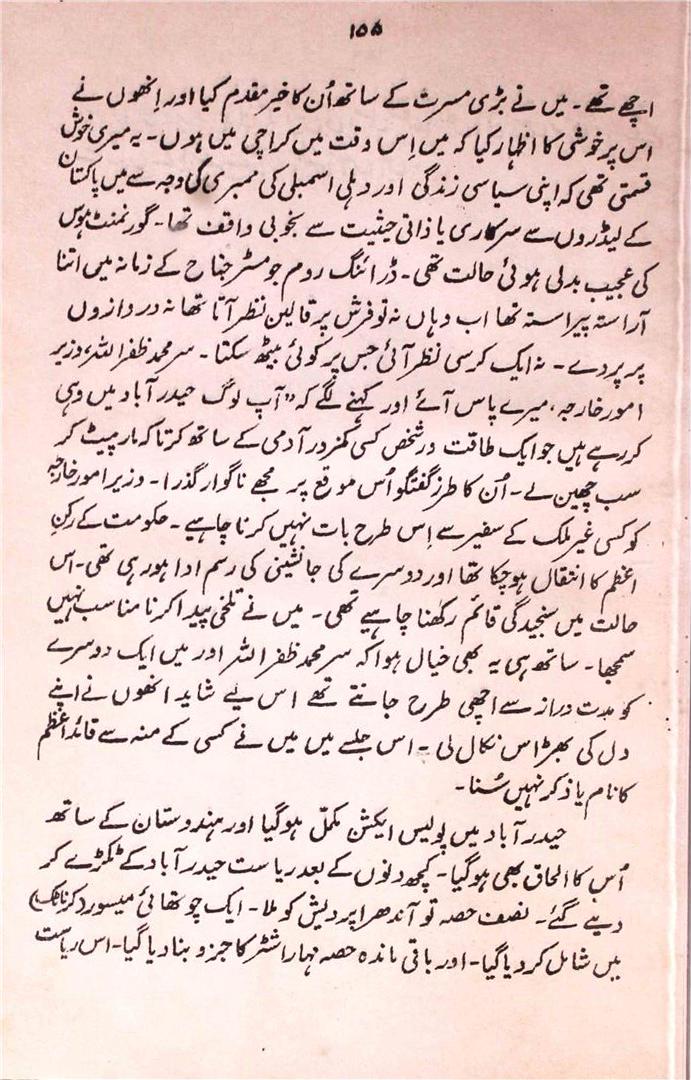 ۱۵۵
اچھے تھے۔ میں نے بڑی مسرت کے ساتھ اُن کا خیر مقدم کیا اور اِنھوں نے
اس پر خوشی کا اظہار کیا کہ میں اِس وقت میں کراچی میں ہوں۔ یہ میری خوش
قسمتی تھی کہ اپنی سیاسی زندگی اور دہلی اسمبلی کی ممبری کی وجہ سے میں پاکستان
کے لیڈروں سے سرکاری یا ذاتی حیثیت سے بخوبی واقف تھا۔ گورنمنٹ ہوس
کی عجیب بدلی ہوئی حالت تھی۔ ڈرائنگ روم جو مسٹر جناح کے زمانہ میں اتنا
آراستہ پیراستہ تھا اب وہاں نہ تو فرش پر قالین نظر آتا تھا نہ دروازوں
پر پردے۔ نہ ایک کرسی نظر آئی جس پر کوئی بیٹھ سکتا۔ سر محمد ظفر اللہ، وزیر
امور خارجہ، میرے پاس آئے اور کہنے لگے کہ ”آپ لوگ حیدرآباد میں وہی
کر رہے ہیں جو ایک طاقت ور شخص کسی کمزور آدمی کے ساتھ کرتا کہ مار پیٹ کر
سب چھین لے۔ اُن کا طرزِ گفتگو اُس موقع پر مجھے ناگوار گذرا۔ وزیر امور خارجہ
کو کسی غیر ملک کے سفیر سے اِس طرح بات نہیں کرنا چاہیے۔ حکومت کے رکنِ
اعظم کا انتقال ہو چکا تھا اور دوسرے کی جانشینی کی رسم ادا ہو رہی تھی۔ اس
حالت میں سنجیدگی قائم رکھنا چاہیے تھی۔ میں نے تلخی پیدا کرنا مناسب نہیں
سمجھا۔ ساتھ ہی یہ بھی خیال ہوا کہ سر محمد ظفر اللہ اور میں ایک دوسرے
کو مدت دراز سے اچھی طرح جانتے تھے اس لیے شاید انھوں نے اپنے
دل کی بھڑاس نکال لی۔ اس جلسے میں میں نے کسی کے منہ سے قائد اعظم
کا نام یا ذکر نہیں سُنا۔
حیدرآباد میں پولیس ایکشن مکمل ہو گیا اور ہندوستان کے ساتھ
اُس کا الحاق بھی ہو گیا۔ کچھ دنوں کے بعد ریاست حیدرآباد کے ٹکڑے کر
دیے گئے۔ نصف حصہ تو آندھرا پردیش کو ملا۔ ایک چوتھائی میسور (کرناٹک)
میں شامل کر دیا گیا۔ اور باقی ماندہ حصہ مہاراشٹر کا جزو بنا دیا گیا۔ اس ریاست